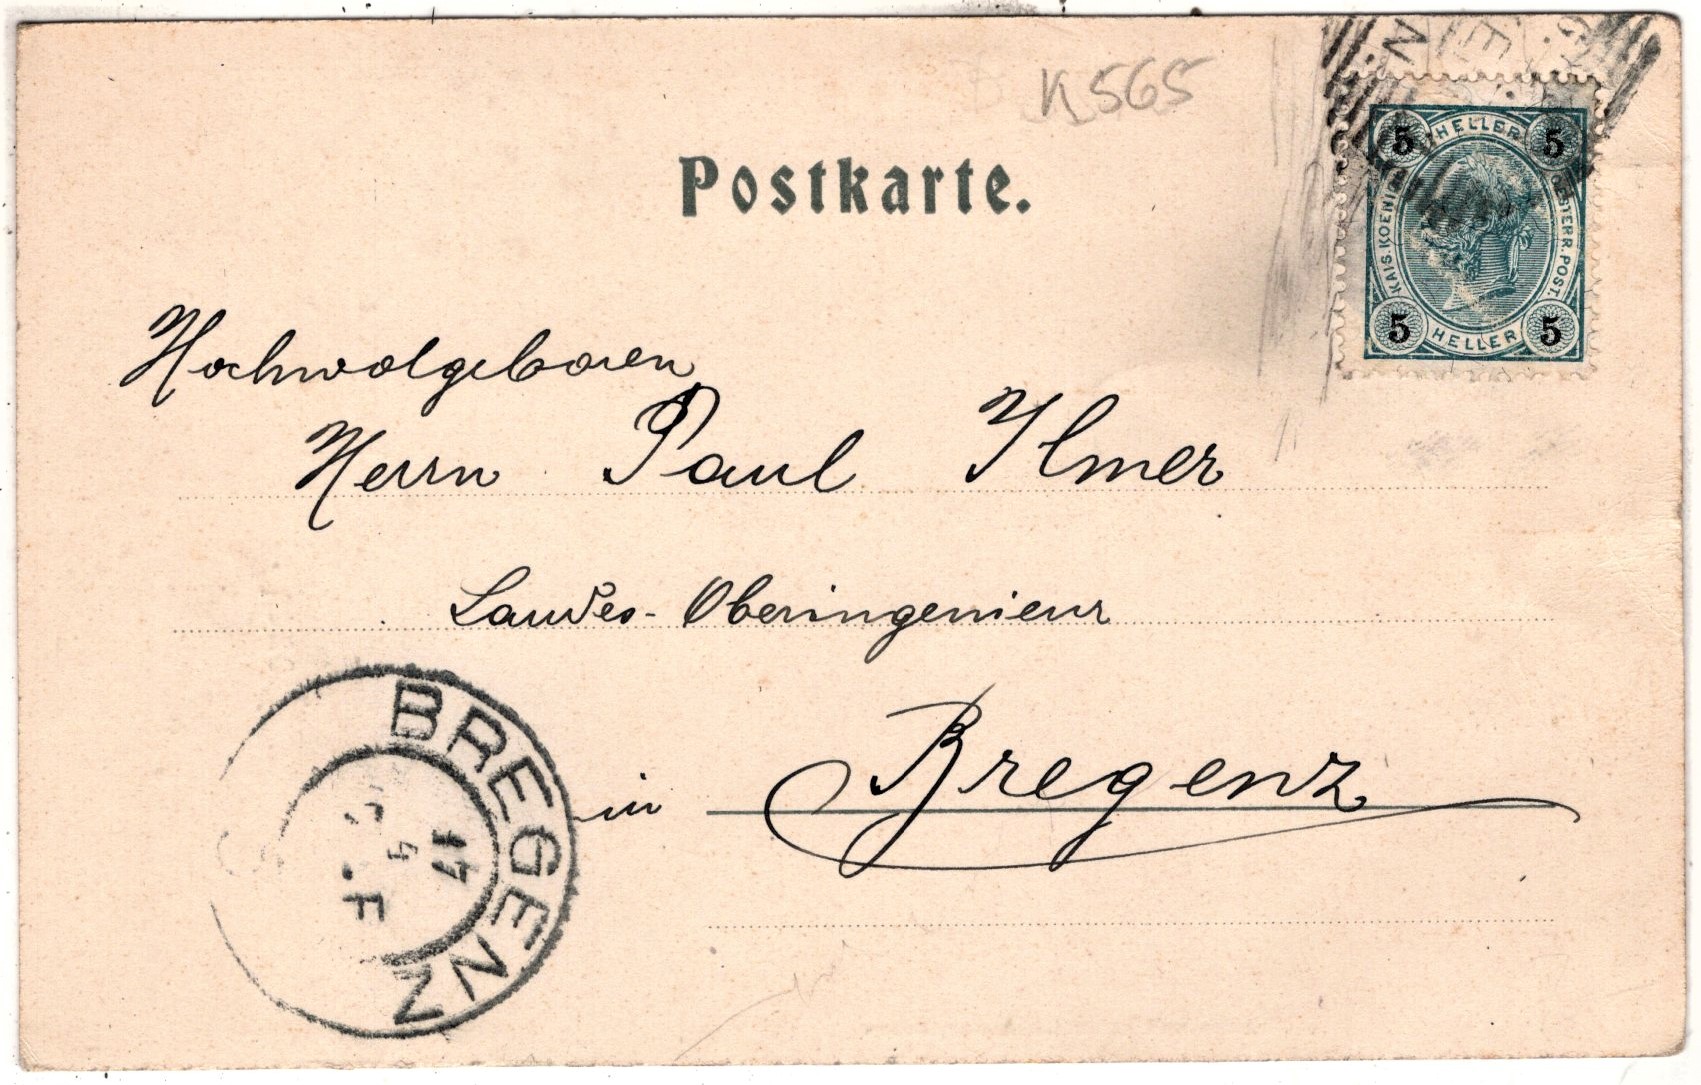 K565
Postkarte.
5 HELLER 5
KAIS. KOENIGL. OESTERR. POST.
5 HELLER 5
Hochwolgeboren
Herrn Paul Ilmer
Landes-Oberingenieur
in Bregenz
BREGENZ
17
4
F